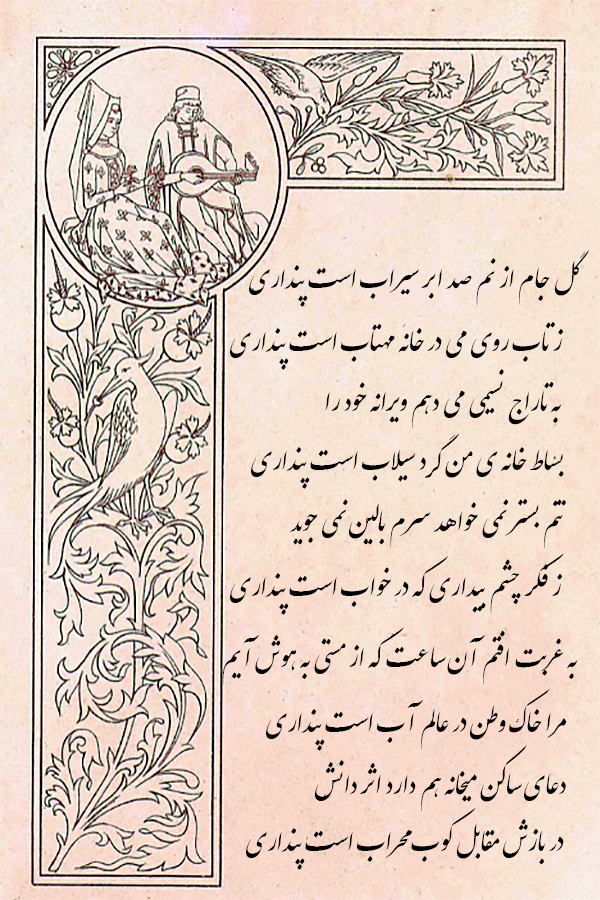 گل جام از نم صد ابر سیراب است پنداری
ز تاب روی می در خانهٔ مهتاب است پنداری
به تاراج نسیمی می دهم ویرانه خود را
بساط خانه ی من گرد سیلاب است پنداری
تنم بستر نمی خواهد سرم بالین نمی جوید
ز فکر چشم بیداری که در خواب است پنداری
به غربت افتم آن ساعت که از مستی به هوش آیم
مرا خاک وطن در عالم آب است پنداری
دعای ساکن میخانه هم دارد اثر دانش
در بازش مقابل کوب محراب است پنداری